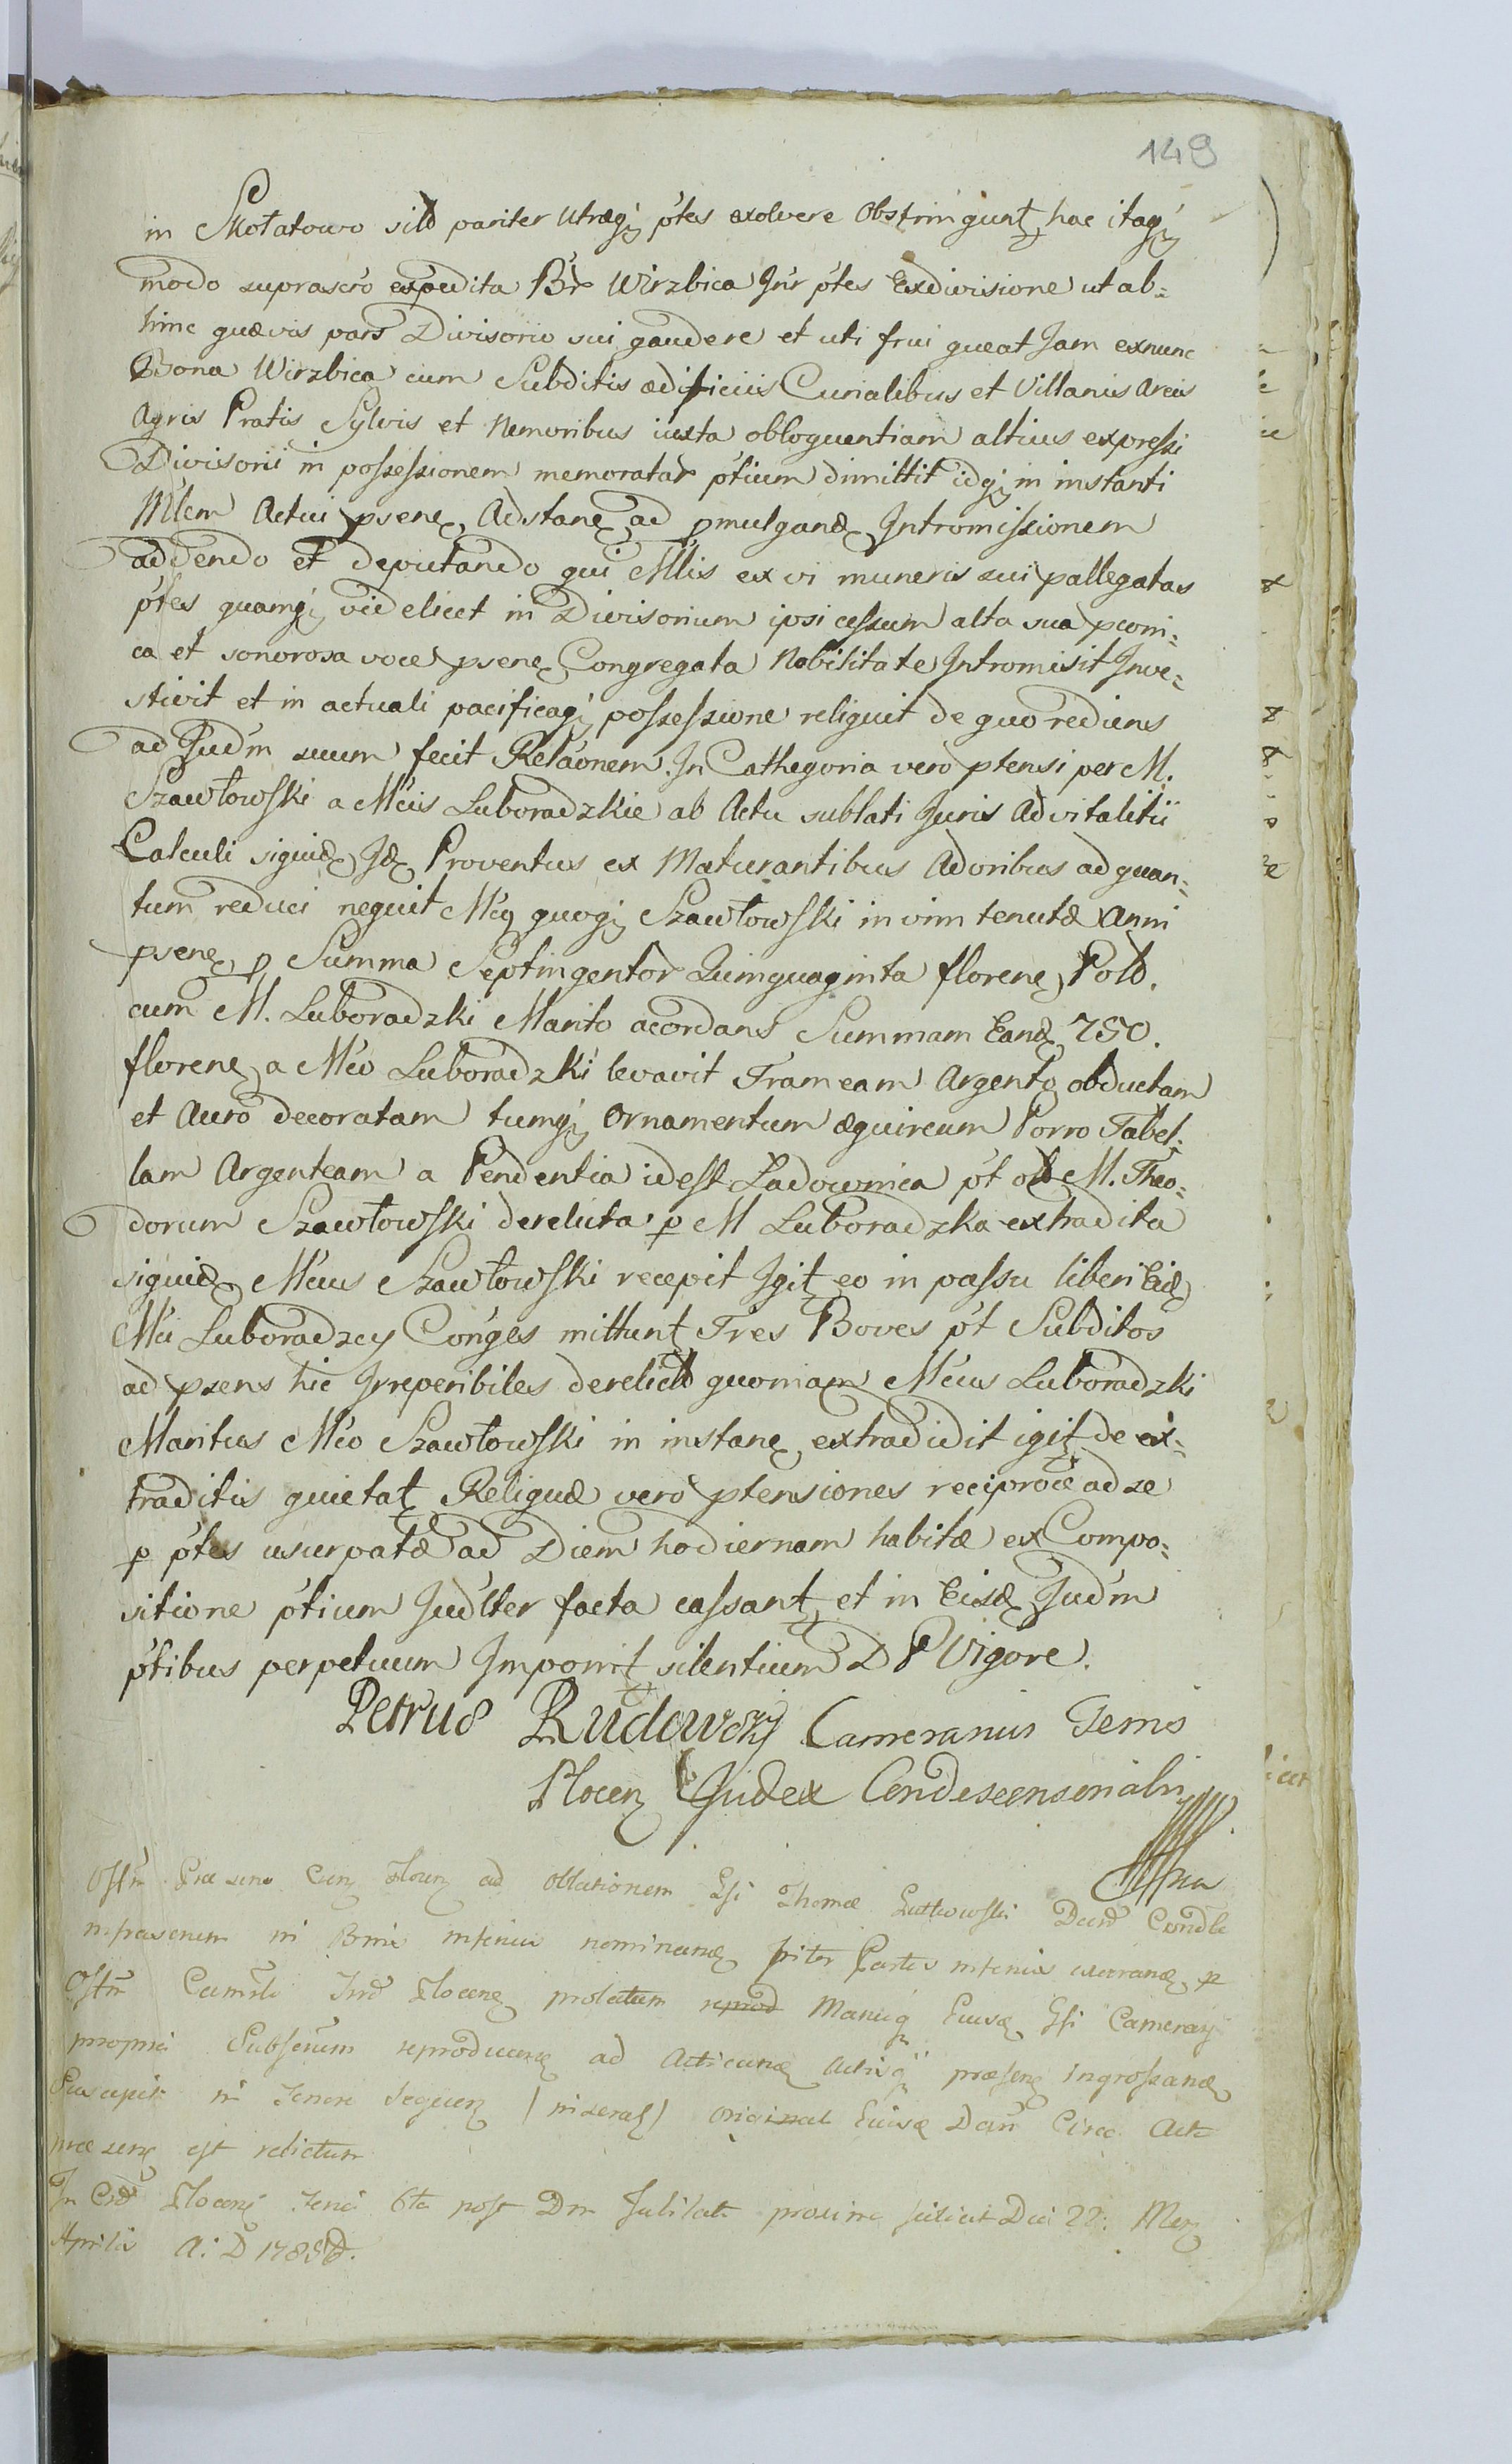 149
in Skołatowo sito pariter utræq; p̃tes exolvere obstringunt, hac itaq;
modo suprascr̃o expedita Br̃ Wirzbica In̄r p̃tes Exdivisione ut ab=
hinc quævis pars Divisorio sui gaudere et uti frui queat Jam exnunc
Bona Wirzbica cum Subditis ædificiis Curialibus et Villanis areis
Agris Pratis Sylvis et Nemoribus iuxta obloquentiam altius expressi
Divisorii in possessionem memoratar p̃tium dimittit idq; in instanti
Mlem Actui psene, Adstane, ad pmulgand Intromissionem
addendo et deputando qui Mlis ex vi muneris sui pallegatas
p̃tes quamq; videlicet in Divisorium ipsi cessum alta sua pconi=
ca et sonorosa voce psene, Congregata Nobilitate Intromisit Inve=
stivit et in actuali pacificaq; possessione reliquit de quo rediens
ad Jud̃m suum fecit Relãonem. In Cathegoria vero ptensi per M.
Szawłowski a M̃cis Luboradzkie ab Actu sublati Juris Advitalitii
Calculi siquid, Id, Proventus ex Maturantibus Adoribus ad quan=
tum reduci nequit M̃cq quoq; Szawłowski in vim tenutæ Anni
psene, p Summa Septingentor Quinquaginta florene, Polo.
cum M. Luboradzki Marito acordans Summam Eand, 750.
florene, a M̃co Luboradzki levavit Frameam Argento obductam
et Auro decoratam tumq; Ornamentum æquireum Porro Tabel=
lam Argenteam a Pendentia idest Ładownica p̃t olo M. Theo=
dorum Szawłowski derelicta p M Luboradzka extradita
siquid, M̃cus Szawłowski recepit Igit, eo in passu liberi Eid,
M̃ci Luboradzcy Con̄ges mittunt, Tres Boves p̃t Subditos
ad psens hic Irreperibiles derelicto quoniam M̃cus Luboradzki
Maritus M̃co Szawłowski in instane, extradidit igit, de ex=
traditis quietat, Reliquæ vero ptensiones reciproce ad se
p p̃tes usurpatæ ad Diem hodiernam habitæ ex Compo=
sitione p̃tium Jud̃lter facta cassant, et in Eisd, Jud̃m
p̃tibus perpetuum Imponit silentium D P Vigore.
Petrus Rudowski Camerarius Terris
Plocen Judex Condescensorialis
Offm Præsens Cen Plocen ad oblationem Gsi Thomæ Gutkowski Decrt Condls
in præsenem in Bnis inferius nominand, inter Partes inferius exarand, p
Offm Camrle Trrē Plocene, prolatum Manuq Eiusd, Gsi Camerarij
propria Subscrum reproducend, ad Acticand, Actisq præsene, ingrossand,
Suscepit in Tenore sequen (inseral) original Eiusd, Decrtī Circa Acta
præsene, est relictum
In Crd̄ Plocensi Feria 6ta post Dm Jubilate proxima scilicet Die 22: Mens
Aprilis A: D 1785to.